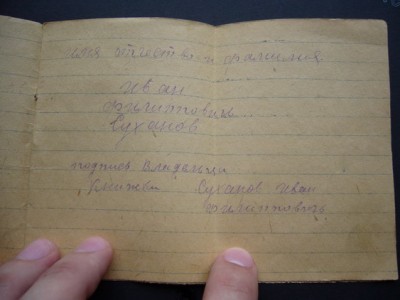 имя отчество и фамилия
Иван
Филипповичь
Суханов
подпись Владельца
Книжки Суханов Иван
Филипповичь